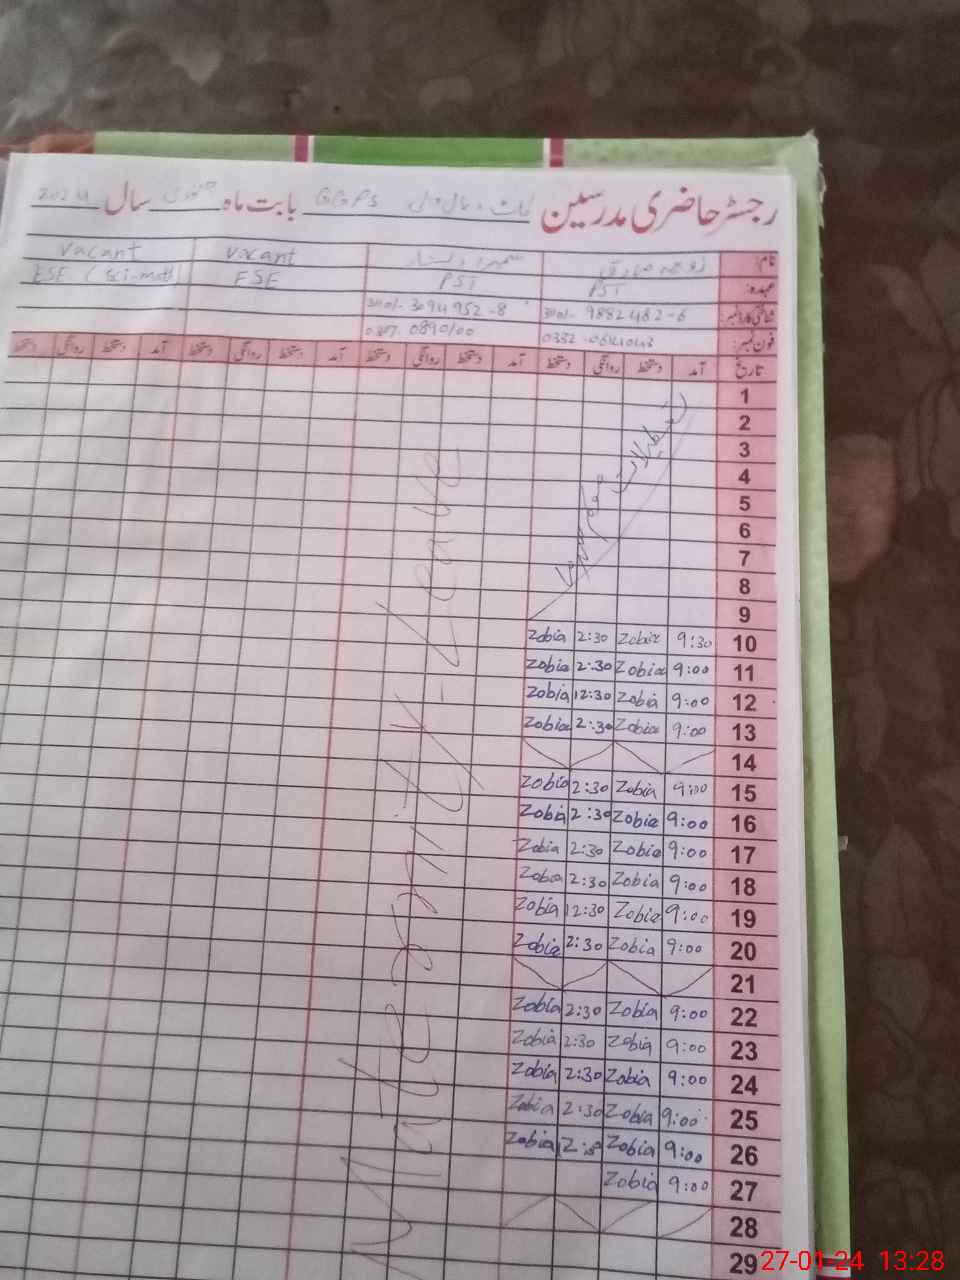 رجسٹر حاضری مدرسین GGPS بابت ماہ جنوری سال 2024
نام: زوبیہ صادق vacant vacant
عہدہ: PST PST ESE ESE (Sci-math)
شناختی کارڈ نمبر: 9882482-6 3094952-8
فون نمبر: 0307-0890100
تاریخ آمد دستخط روانگی دستخط آمد دستخط روانگی دستخط آمد دستخط روانگی دستخط آمد دستخط روانگی دستخط
1
2
3
4
5
6
7
8
9
تعطیلات موسم سرما
Maternity Leave
10 9:30 Zobia 2:30 Zobia
11 9:00 Zobia 2:30 Zobia
12 9:00 Zobia 12:30 Zobia
13 9:00 Zobia 2:30 Zobia
14
15 9:00 Zobia 2:30 Zobia
16 9:00 Zobia 2:30 Zobia
17 9:00 Zobia 2:30 Zobia
18 9:00 Zobia 2:30 Zobia
19 9:00 Zobia 12:30 Zobia
20 9:00 Zobia 2:30 Zobia
21
22 9:00 Zobia 2:30 Zobia
23 9:00 Zobia 2:30 Zobia
24 9:00 Zobia 2:30 Zobia
25 9:00 Zobia 2:30 Zobia
26 9:00 Zobia Zobia
27 9:00 Zobia
28
29
27-01-24 13:28